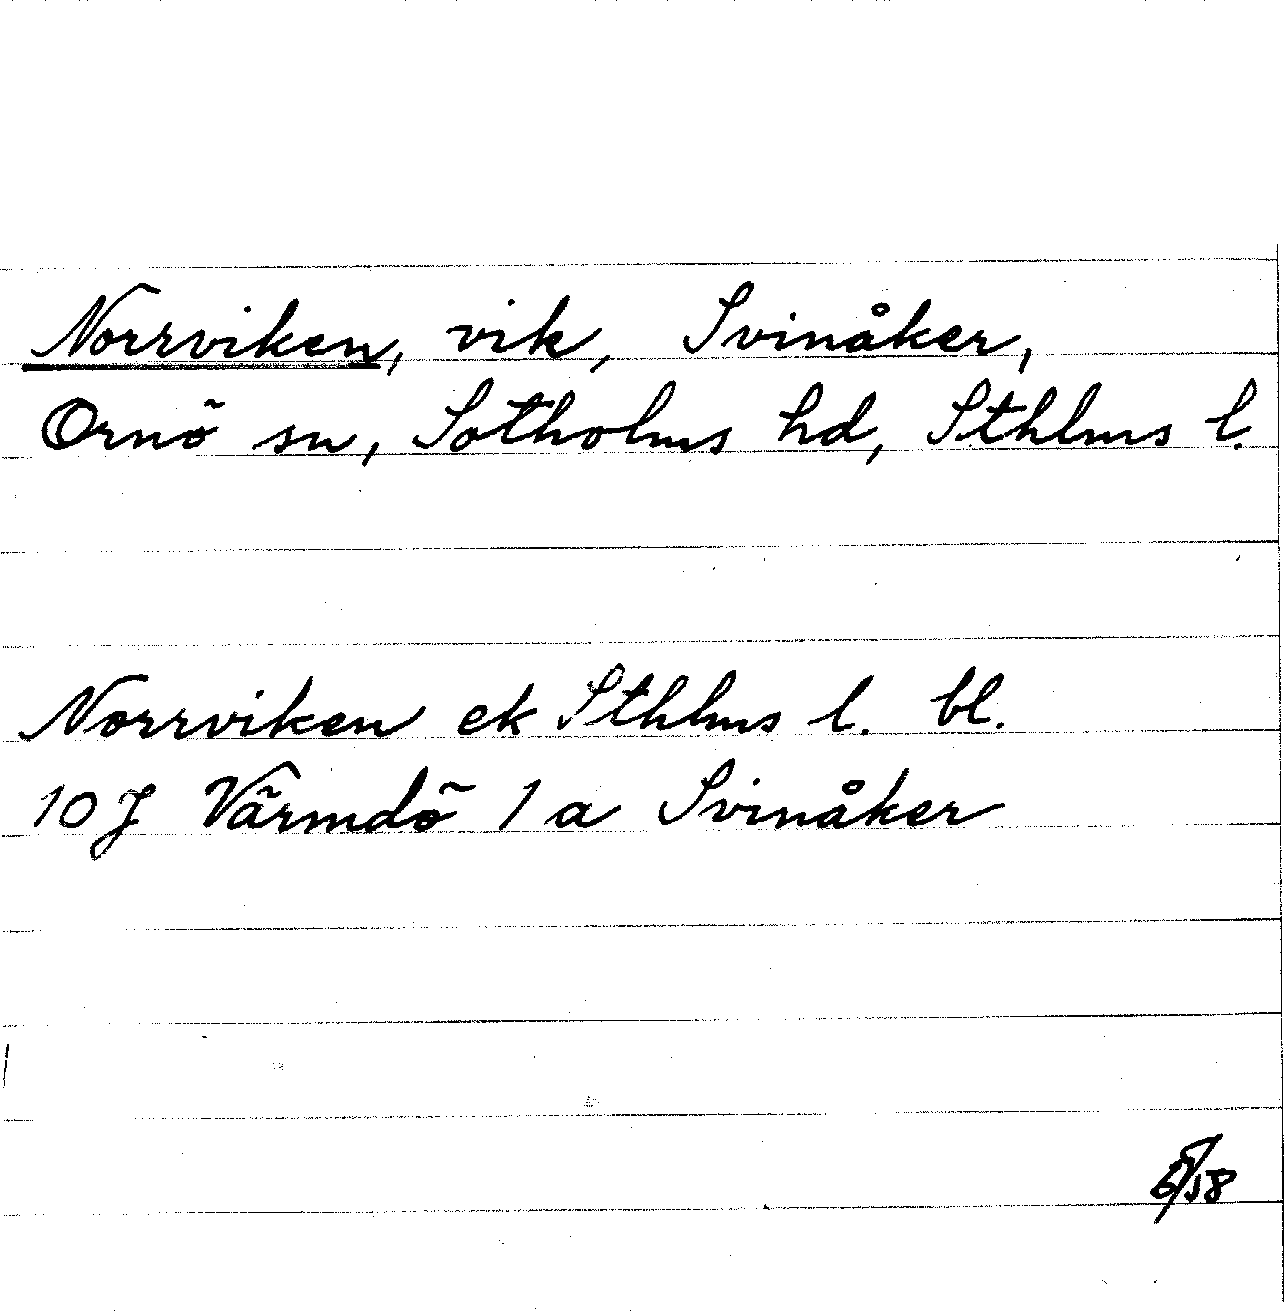 Norrviken, vik, Svinåker,
Ornö sn, Sotholms hd, Sthlms l.
Norrviken ek Sthlms l. bl.
10 J Värmdö 1 a Svinåker